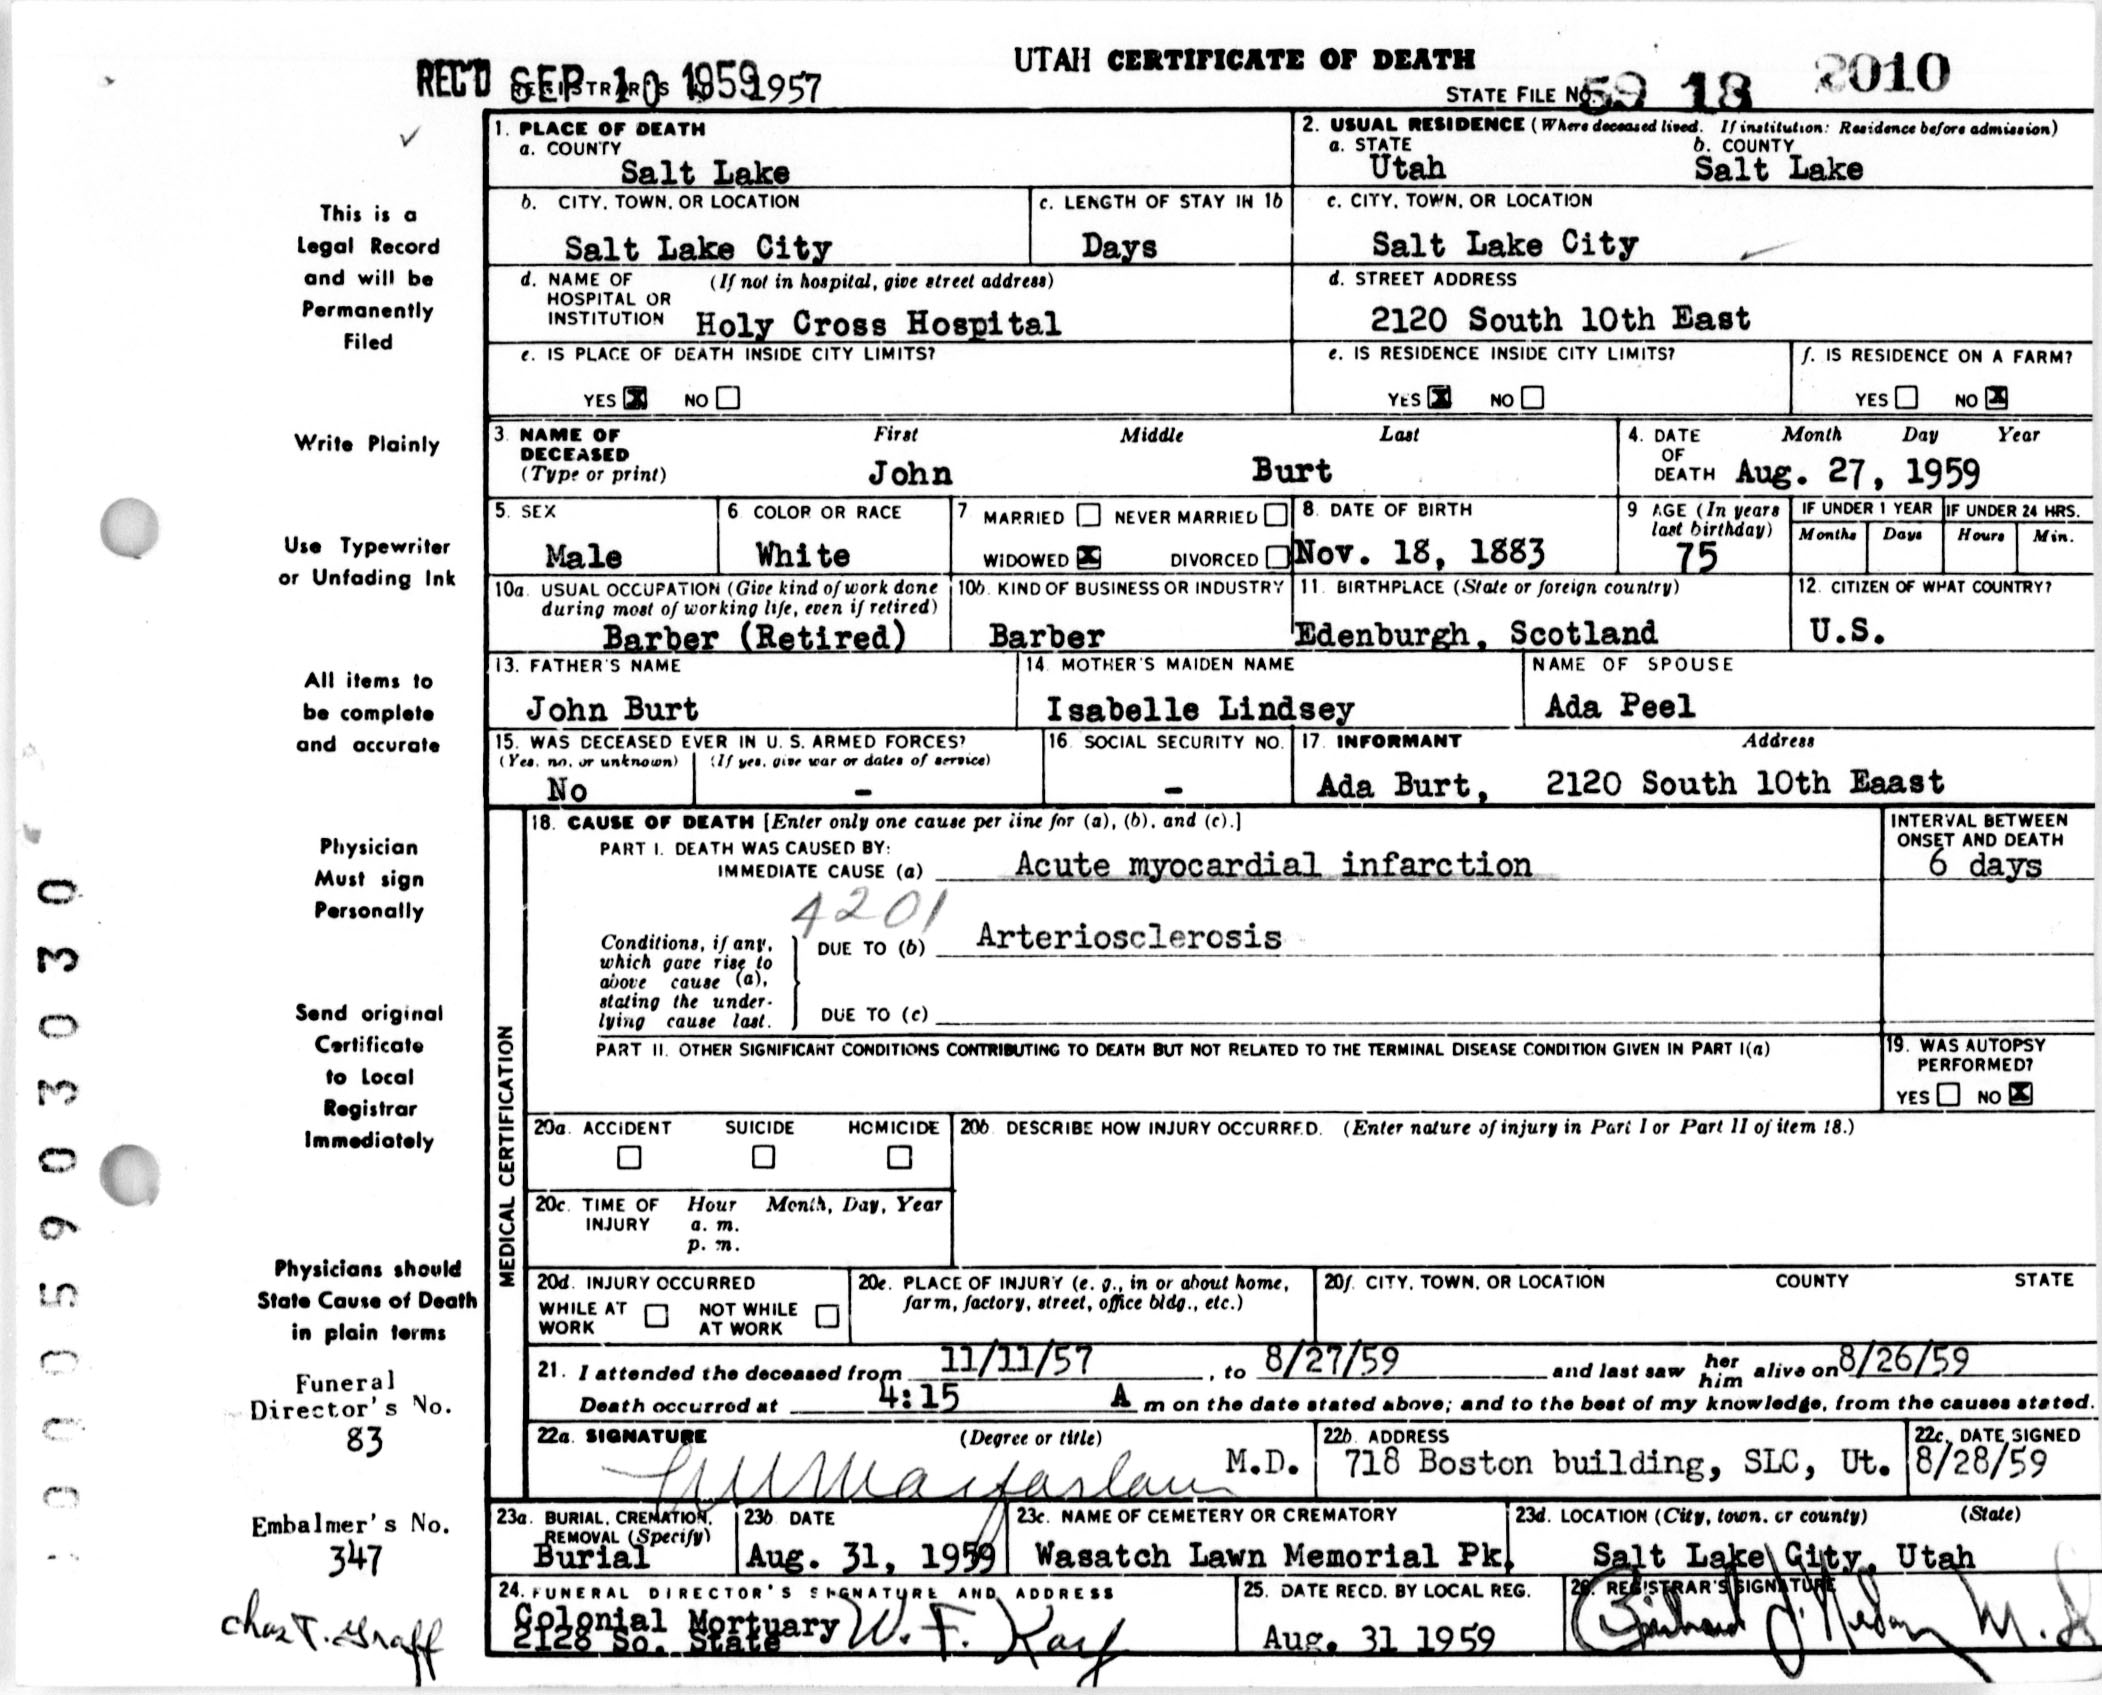 UTAH CERTIFICATE OF DEATH
REC'D SEP 10 1959 1957
STATE FILE NO. 59 18 2010
1. PLACE OF DEATH
a. COUNTY
Salt Lake
2. USUAL RESIDENCE (Where deceased lived. If institution: Residence before admission)
a. STATE b. COUNTY
Utah Salt Lake
b. CITY, TOWN, OR LOCATION
Salt Lake City
c. LENGTH OF STAY IN 1b
Days
c. CITY, TOWN, OR LOCATION
Salt Lake City
d. NAME OF HOSPITAL OR INSTITUTION (If not in hospital, give street address)
Holy Cross Hospital
d. STREET ADDRESS
2120 South 10th East
e. IS PLACE OF DEATH INSIDE CITY LIMITS?
YES X NO
e. IS RESIDENCE INSIDE CITY LIMITS?
YES X NO
f. IS RESIDENCE ON A FARM?
YES NO X
3. NAME OF DECEASED (Type or print)
First Middle Last
John Burt
4. DATE OF DEATH Month Day Year
Aug. 27, 1959
5. SEX
Male
6 COLOR OR RACE
White
7 MARRIED NEVER MARRIED
WIDOWED X DIVORCED
8. DATE OF BIRTH
Nov. 18, 1883
9 AGE (In years last birthday)
75
IF UNDER 1 YEAR
Months Days
IF UNDER 24 HRS.
Hours Min.
10a. USUAL OCCUPATION (Give kind of work done
during most of working life, even if retired)
Barber (Retired)
10b. KIND OF BUSINESS OR INDUSTRY
Barber
11. BIRTHPLACE (State or foreign country)
Edenburgh, Scotland
12. CITIZEN OF WHAT COUNTRY?
U.S.
13. FATHER'S NAME
John Burt
14. MOTHER'S MAIDEN NAME
Isabelle Lindsey
NAME OF SPOUSE
Ada Peel
15. WAS DECEASED EVER IN U. S. ARMED FORCES?
(Yes, no, or unknown) (If yes, give war or dates of service)
No -
16. SOCIAL SECURITY NO.
-
17. INFORMANT Address
Ada Burt, 2120 South 10th Eaast
18. CAUSE OF DEATH [Enter only one cause per line for (a), (b), and (c).]
PART I. DEATH WAS CAUSED BY:
IMMEDIATE CAUSE (a) Acute myocardial infarction
4201
INTERVAL BETWEEN
ONSET AND DEATH
6 days
Conditions, if any,
which gave rise to
above cause (a),
stating the under-
lying cause last.
DUE TO (b) Arteriosclerosis
DUE TO (c)
PART II. OTHER SIGNIFICANT CONDITIONS CONTRIBUTING TO DEATH BUT NOT RELATED TO THE TERMINAL DISEASE CONDITION GIVEN IN PART I(a)
19. WAS AUTOPSY
PERFORMED?
YES NO X
MEDICAL CERTIFICATION
20a. ACCIDENT SUICIDE HOMICIDE
20b. DESCRIBE HOW INJURY OCCURRED. (Enter nature of injury in Part I or Part II of item 18.)
20c. TIME OF INJURY Hour Month, Day, Year
a. m.
p. m.
20d. INJURY OCCURRED
WHILE AT WORK NOT WHILE AT WORK
20e. PLACE OF INJURY (e. g., in or about home,
farm, factory, street, office bldg., etc.)
20f. CITY, TOWN, OR LOCATION COUNTY STATE
21. I attended the deceased from 11/11/57, to 8/27/59 and last saw her him alive on 8/26/59
Death occurred at 4:15 A m on the date stated above; and to the best of my knowledge, from the causes stated.
22a. SIGNATURE (Degree or title)
M.D.
22b. ADDRESS
718 Boston building, SLC, Ut.
22c. DATE SIGNED
8/28/59
23a. BURIAL, CREMATION,
REMOVAL (Specify)
Burial
23b DATE
Aug. 31, 1959
23c. NAME OF CEMETERY OR CREMATORY
Wasatch Lawn Memorial Pk.
23d. LOCATION (City, town, or county) (State)
Salt Lake City, Utah
24. FUNERAL DIRECTOR'S SIGNATURE AND ADDRESS
Colonial Mortuary W. F. Kay
2128 So. State
25. DATE RECD. BY LOCAL REG.
Aug. 31 1959
26. REGISTRAR'S SIGNATURE
This is a
Legal Record
and will be
Permanently
Filed
Write Plainly
Use Typewriter
or Unfading Ink
All items to
be complete
and accurate
Physician
Must sign
Personally
Send original
Certificate
to Local
Registrar
Immediately
Physicians should
State Cause of Death
in plain terms
Funeral
Director's No.
83
Embalmer's No.
347
Chas T. Graff